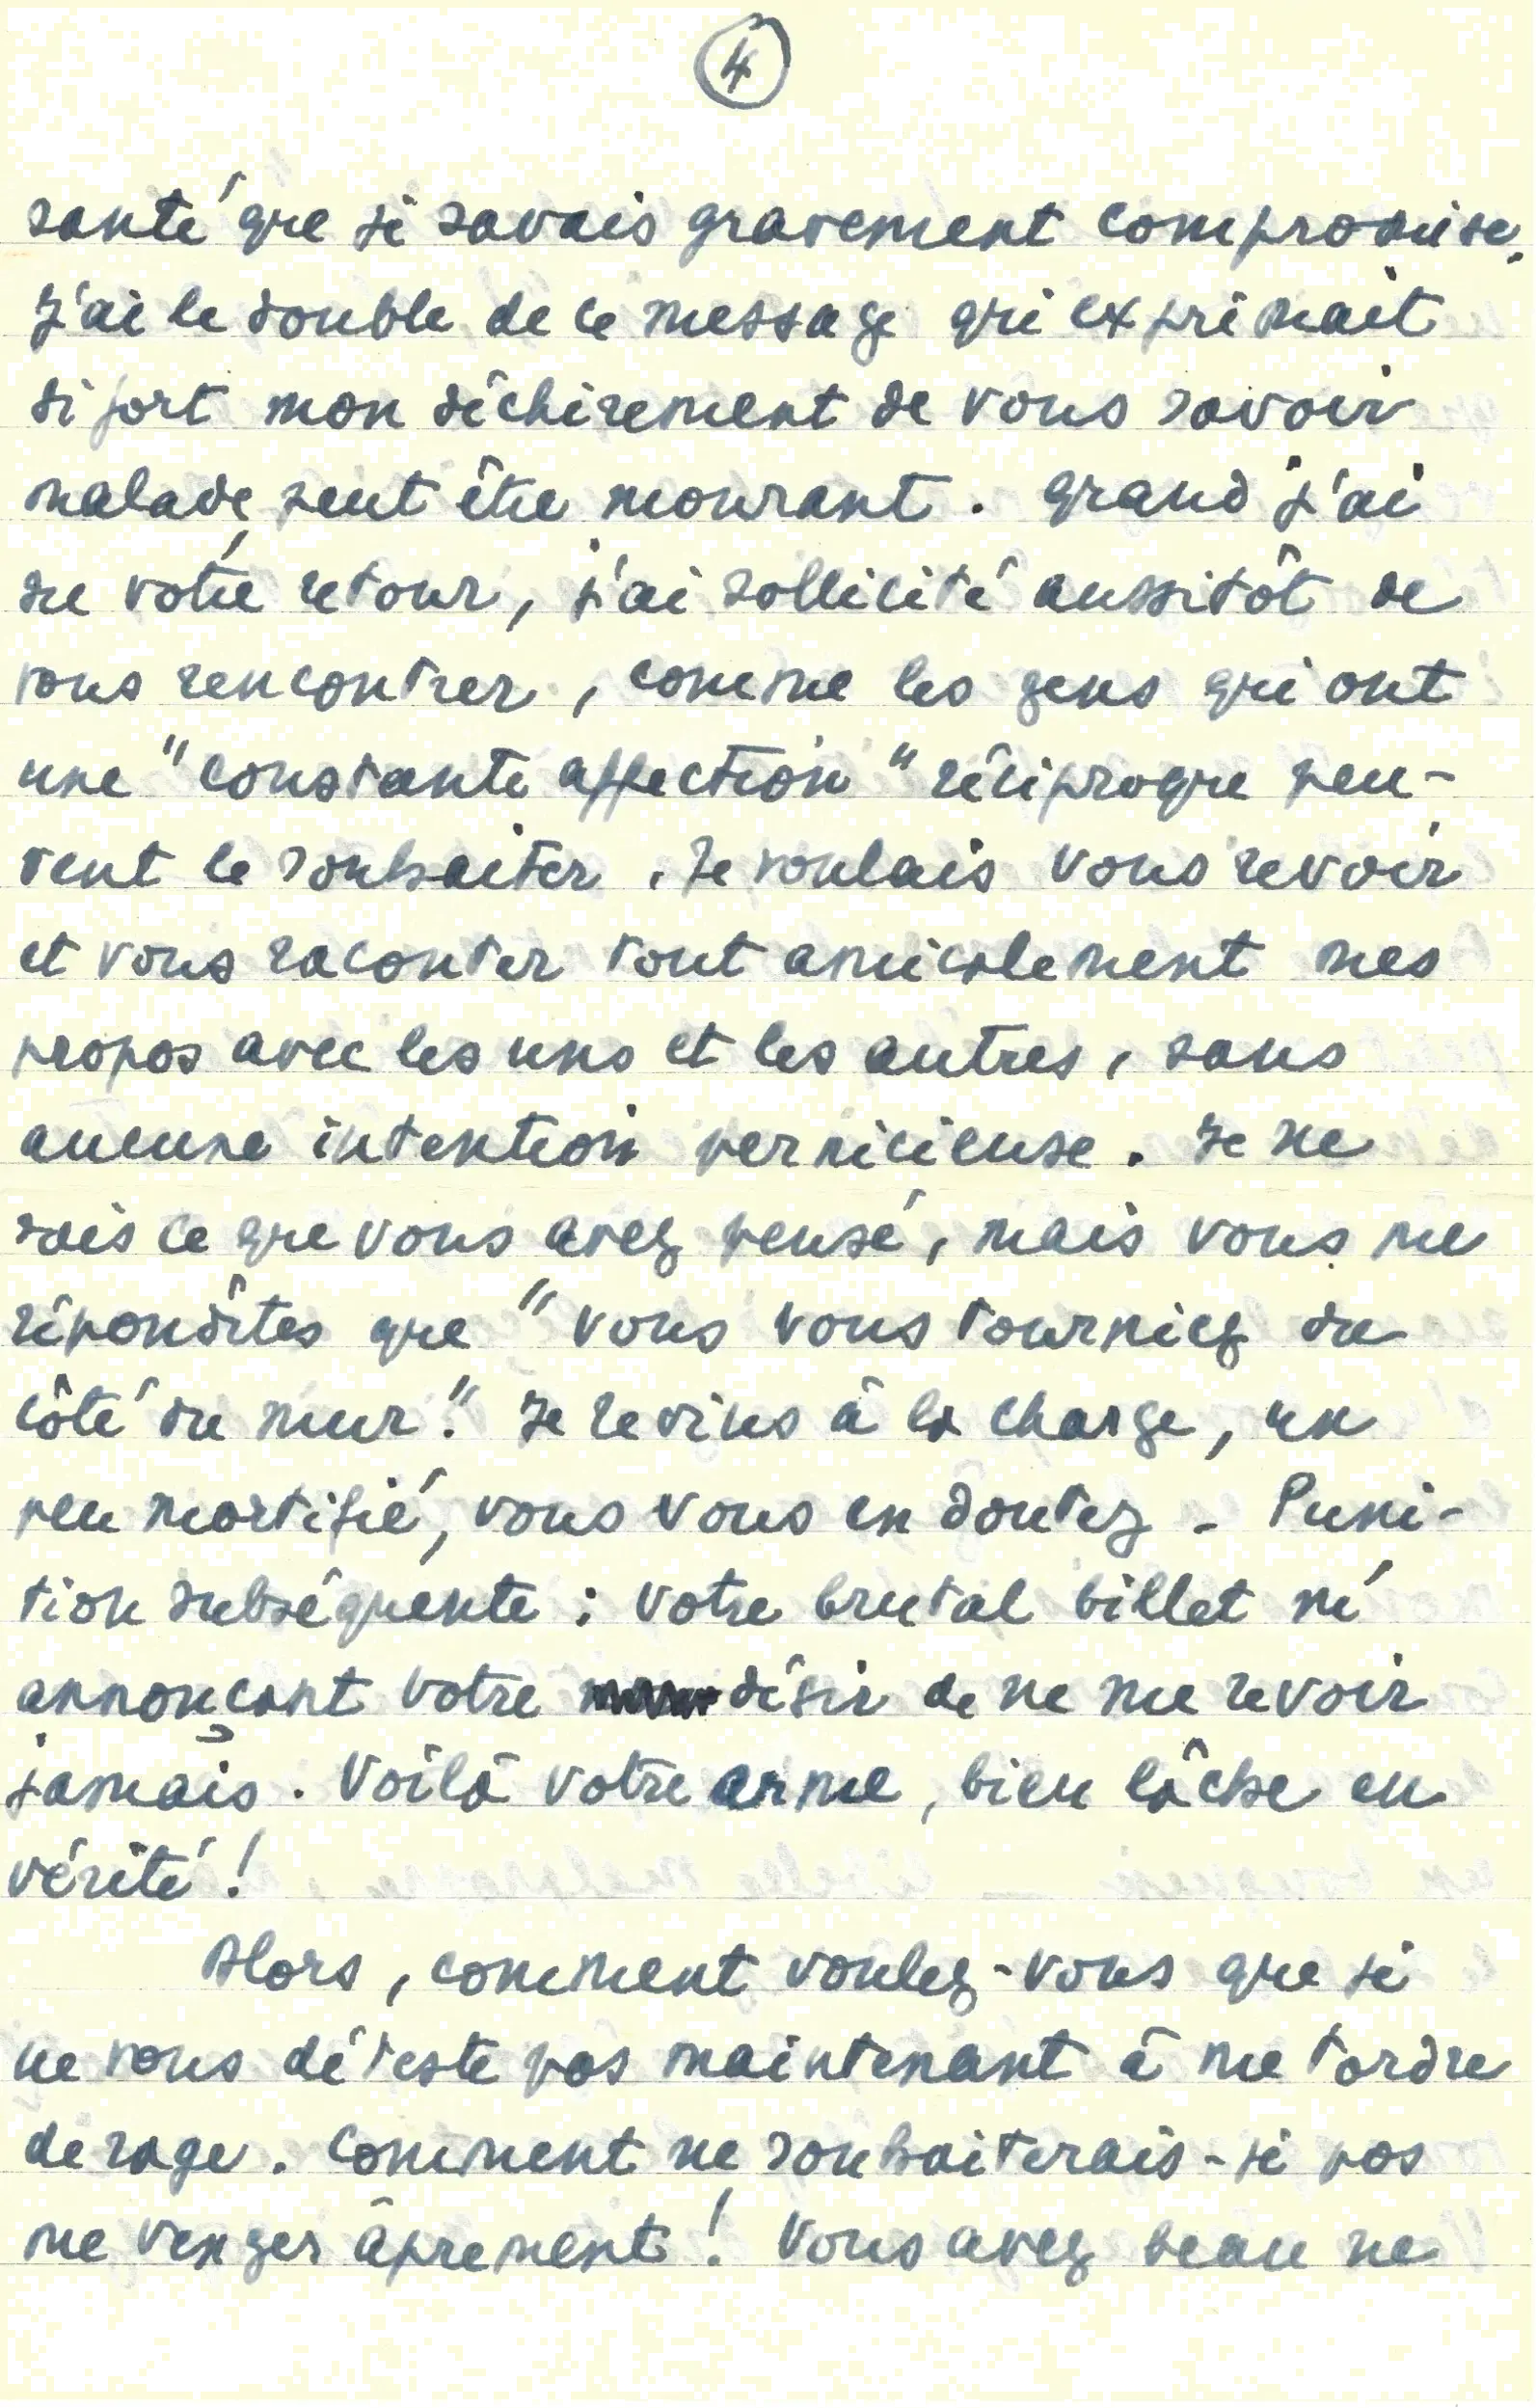 4
santé que je savais gravement compromise.
J'ai le double de ce message qui exprimait
si fort mon déchirement de vous savoir
malade, peut être mourant. Quand j'ai
su votre retour, j'ai sollicité aussitôt de
vous rencontrer, comme les gens qui ont
une "constante affection" réciproque peu-
vent le souhaiter. Je voulais vous revoir
et vous raconter tout amicalement mes
propos avec les uns et les autres, sans
aucune intention pernicieuse. Je ne
sais ce que vous avez pensé, mais vous me
répondîtes que "vous vous tourniez du
côté du mur". Je revins à la charge, un
peu mortifié, vous vous en doutez - Puni-
tion subséquente : votre brutal billet m'
annonçant votre désir de ne me revoir
jamais. Voilà votre arme, bien lâche en
vérité !
Alors, comment voulez-vous que je
ne vous déteste pas maintenant à me tordre
de rage. Comment ne souhaiterais-je pas
me venger âprement ! Vous avez beau ne